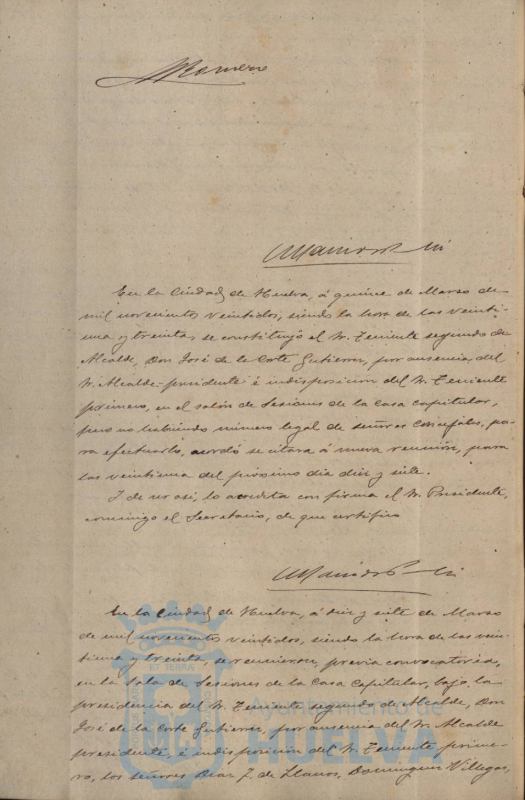 Romero
En la Ciudad de Huelva, á quince de Marzo de
mil novecientos veintidos, siendo la hora de las veinti-
una y treinta, se constituyó el Sr. Teniente segundo de
Alcalde, Don José de la Corte Gutierrez, por ausencia del
Sr. Alcalde-presidente é indisposición del Sr. Teniente
primero, en el salón de Sesiones de la Casa capitular,
pero no habiendo número legal de señores Concejales, pa-
ra efectuarlo, acordó se citara á nueva reunión, para
las veintiuna del próximo dia diez y siete.
Y de ser asi, lo acredita con firma el Sr. Presidente,
conmigo el Secretario, de que certifico
En la Ciudad de Huelva, á diez y siete de Marzo
de mil novecientos veintidos, siendo la hora de las vein-
tiuna y treinta, se reunieron, previa convocatoria,
en la Sala de Sesiones de la Casa Capitular, bajo la
presidencia del Sr. Teniente segundo de Alcalde, Don
José de la Corte Gutierrez, por ausencia del Sr. Alcalde
presidente, é indisposición del Sr. Teniente prime-
ro, los señores de Llanos, Dominguez Villegas,
Ayuntamiento de
HUELVA